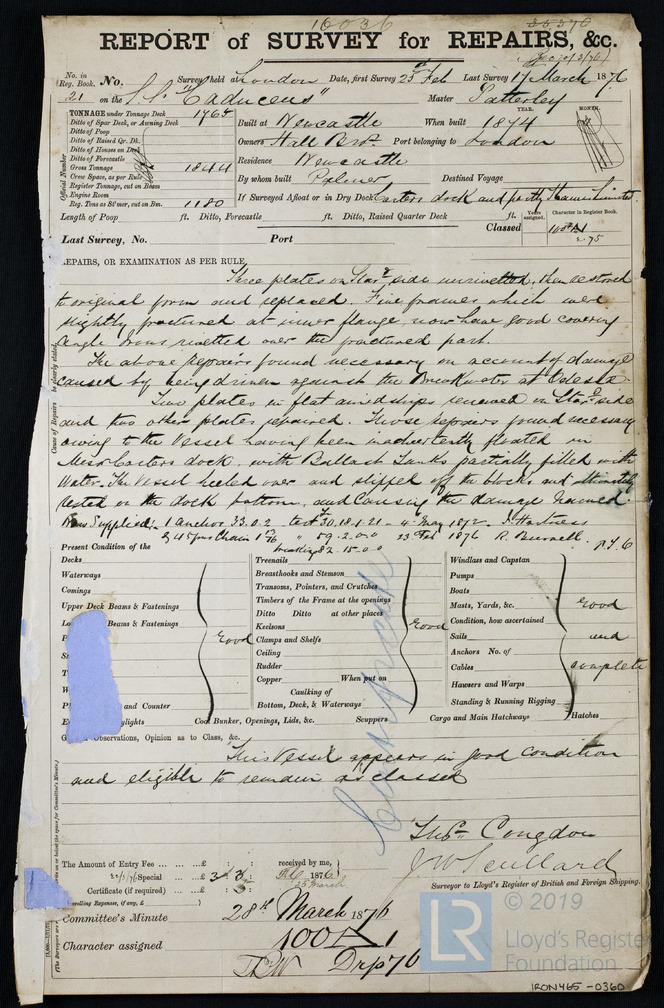 10036
REPORT of SURVEY for REPAIRS, &c.
No. in Reg. Book. No. Survey held at London Date, first Survey 25 Feb Last Survey 17 March 1876
21 on the S.S. "Caduceus" Master Patterley
TONNAGE under Tonnage Deck 1764
Ditto of Spar Deck, or Awning Deck
Ditto of Poop
Ditto of Raised Qr. Dk.
Ditto of Houses on Deck
Ditto of Forecastle
Gross Tonnage 1844
Crew Space, as per Rule
Register Tonnage, cut on Beam
Engine Room
Reg. Tons as St'mer, cut on Bm. 1180
Official Number
Built at Newcastle When built YEAR. 1874 MONTH.
Owners Hall Bros. Port belonging to London
Residence Newcastle
By whom built Palmer Destined Voyage
If Surveyed Afloat or in Dry Dock Carters dock and partly
Length of Poop ft. Ditto, Forecastle ft. Ditto, Raised Quarter Deck ft.
Years assigned. Character in Register Book.
Last Survey, No. Port Classed 100 A1
2.75
REPAIRS, OR EXAMINATION AS PER RULE,
Three plates on Starᵈ side unrivetted, then restored
to original form and replaced. Five frames which were
slightly fractured at inner flange now have good covering
angle Irons rivetted over the fractured part.
The above repairs found necessary on account of damage
caused by being driven against the Breakwater at Odessa.
Two plates in flat amidships renewed on Starᵈ side
and two other plates repaired. Those repairs found necessary
owing to the Vessel having been inadvertently floated in
Messrs Carters dock, with Ballast Tanks partially filled with
Water. The Vessel heeled over and slipped off the blocks and ultimately
rested on the dock bottom, and causing the damage named.
Now Supplied:- 1 anchor 33.0.2 test 30.18.1.21 - 4 May 1872 - Hartness
& 45 fms Chain 1 9/16 " 59.2.0.0 23 Feb 1876 R. Burnell.
breaking 82.15.0.0
Cause of Repairs to be clearly stated.
Present Condition of the
Decks
Waterways
Comings
Upper Deck Beams & Fastenings
Beams & Fastenings
and Counter
Coal Bunker, Openings, Lids, &c.
Good
Treenails
Breasthooks and Stemson
Transoms, Pointers, and Crutches
Timbers of the Frame at the openings
Ditto Ditto at other places
Keelsons
Clamps and Shelfs
Ceiling
Rudder
Copper When put on
Caulking of
Bottom, Deck, & Waterways
Scuppers
Good
Windlass and Capstan
Pumps
Boats
Masts, Yards, &c.
Condition, how ascertained
Sails
Anchors No. of
Cables
Hawsers and Warps
Standing & Running Rigging
Cargo and Main Hatchways Hatches
Good
and
complete
Observations, Opinion as to Class, &c.
This Vessel appears in good condition
and eligible to remain as classed
Thos. Congdon
J W Scullard
Surveyor to Lloyd's Register of British and Foreign Shipping.
The Amount of Entry Fee £ : : received by me,
Special £ 3 : 3 : 1876
Certificate (if required) £ 25 March
Committee's Minute 28th March 1876
Character assigned 100 A 1
Drp 76
© 2019
LR
Lloyd's Register
Foundation
IRON465-0360